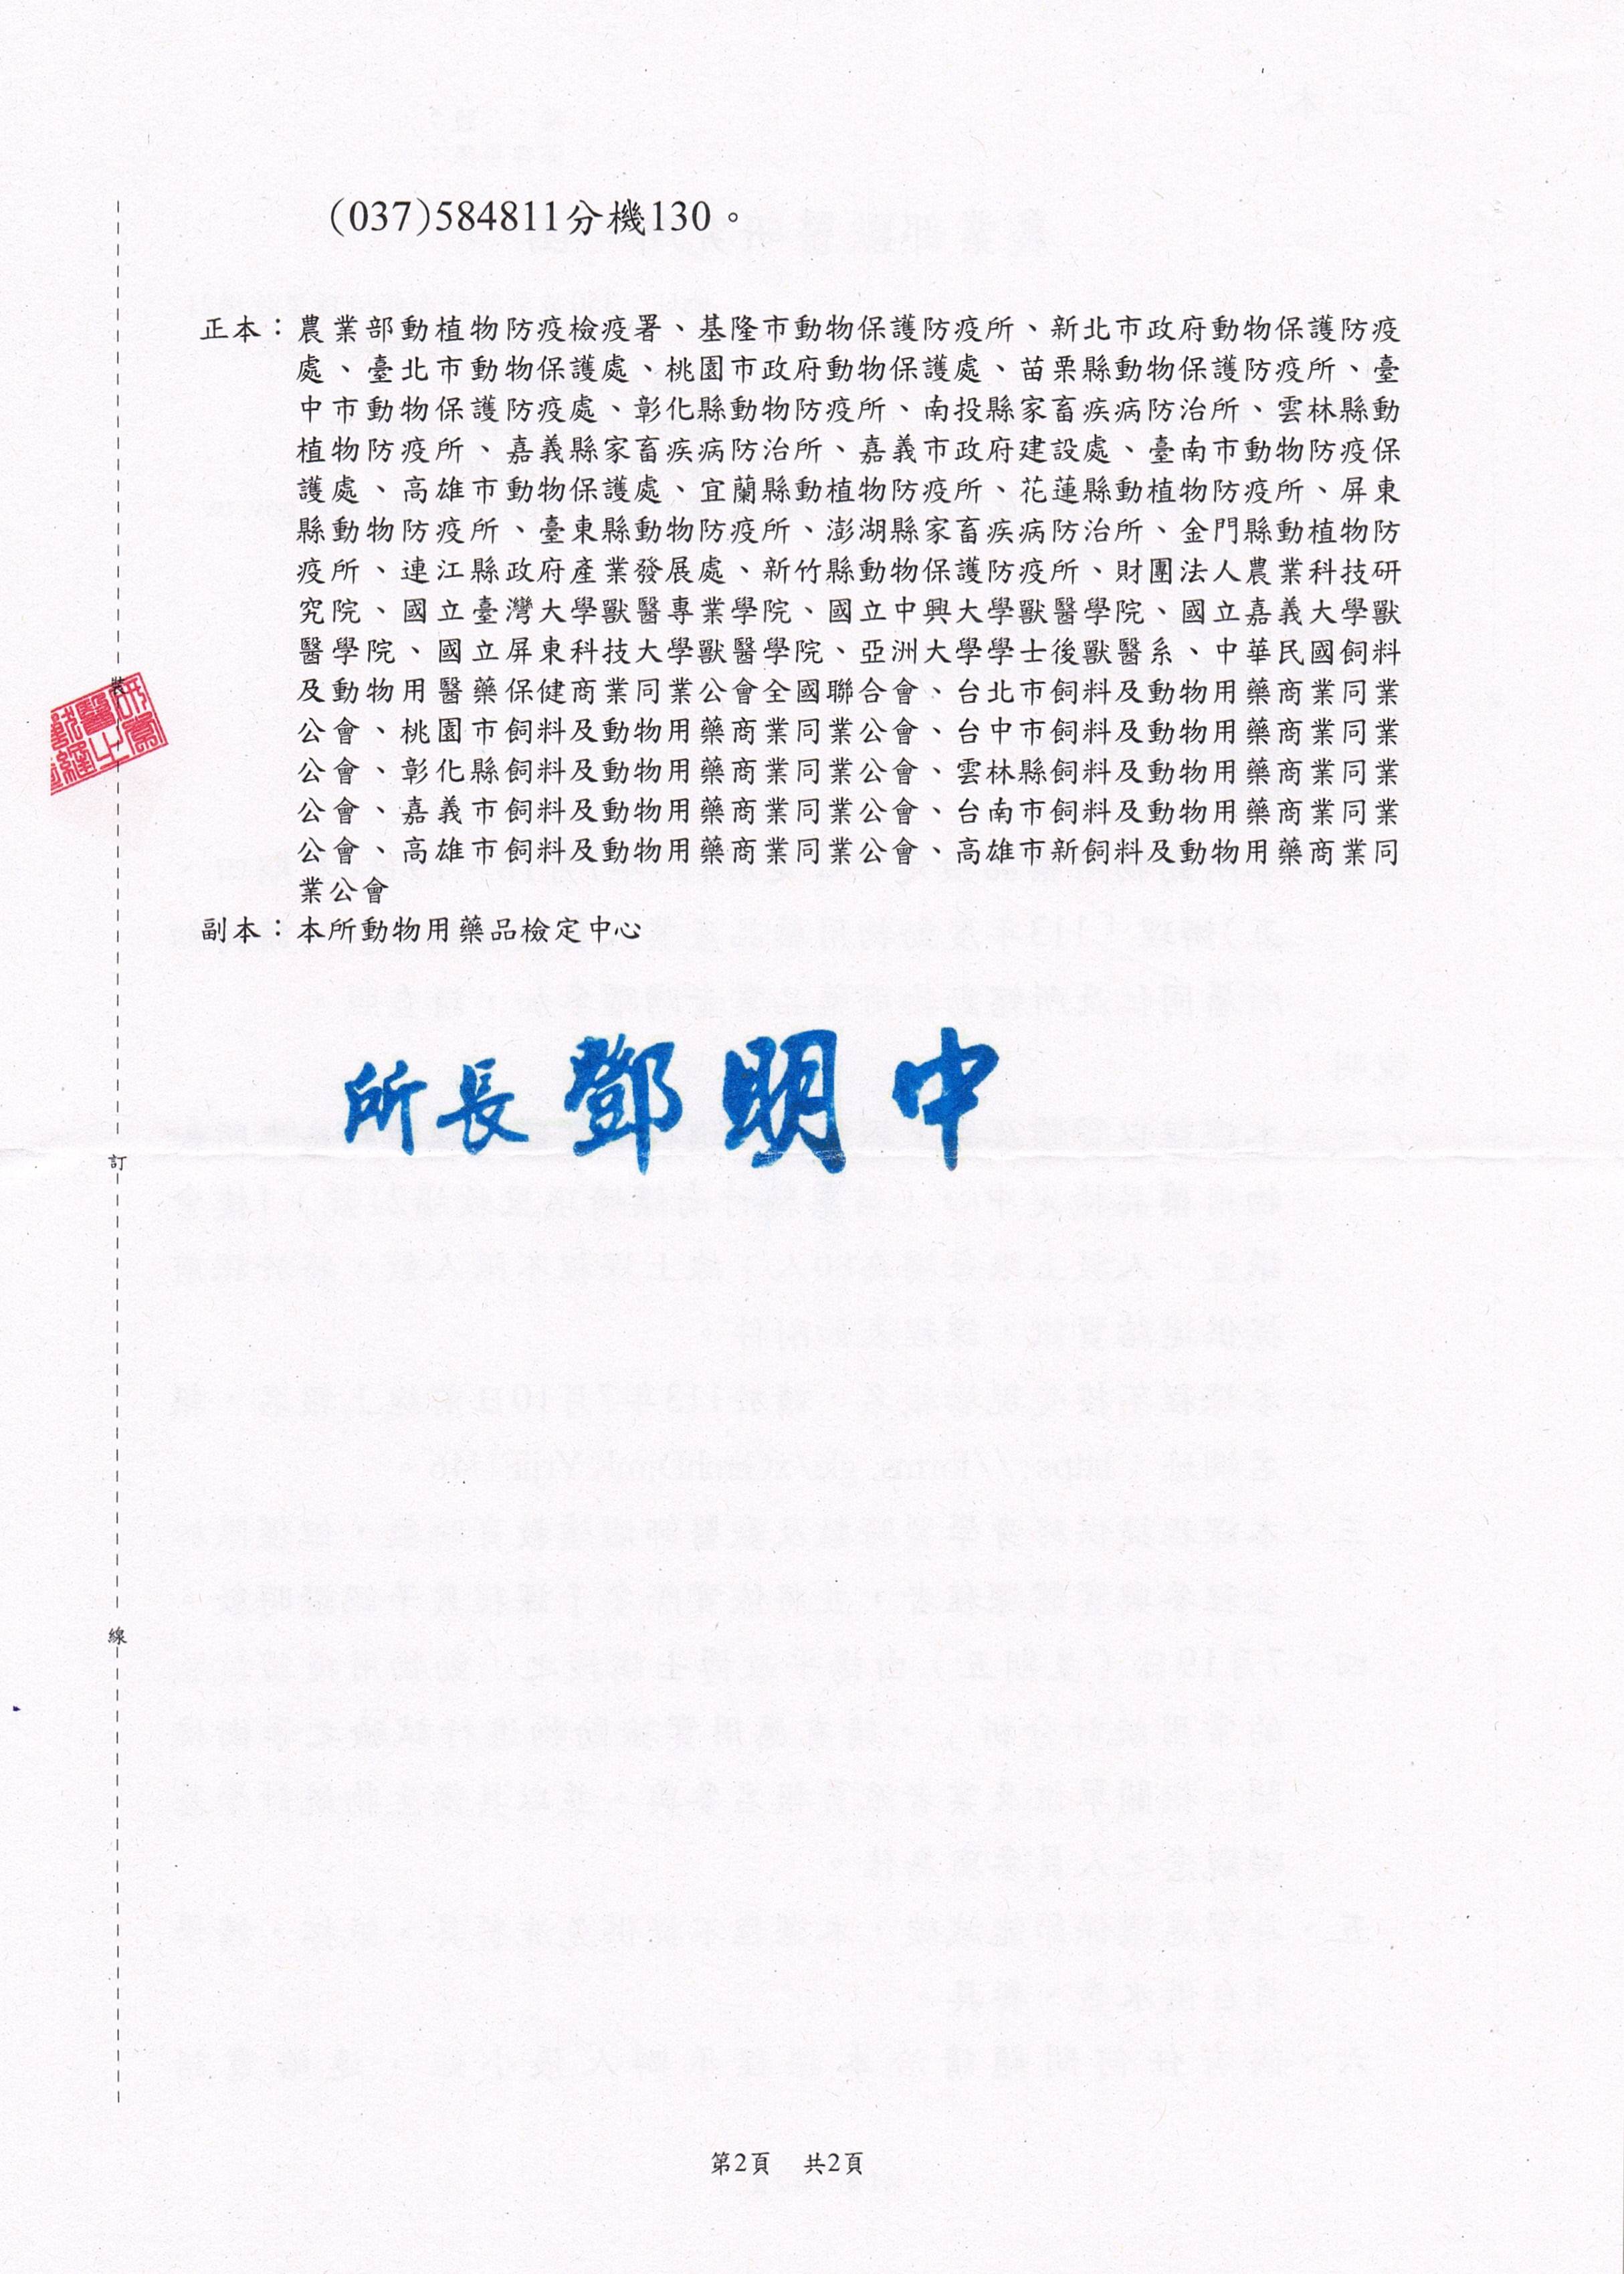 (037)584811分機130。
正本：農業部動植物防疫檢疫署、基隆市動物保護防疫所、新北市政府動物保護防疫
處、臺北市動物保護處、桃園市政府動物保護處、苗栗縣動物保護防疫所、臺
中市動物保護防疫處、彰化縣動物防疫所、南投縣家畜疾病防治所、雲林縣動
植物防疫所、嘉義縣家畜疾病防治所、嘉義市政府建設處、臺南市動物防疫保
護處、高雄市動物保護處、宜蘭縣動植物防疫所、花蓮縣動植物防疫所、屏東
縣動物防疫所、臺東縣動物防疫所、澎湖縣家畜疾病防治所、金門縣動植物防
疫所、連江縣政府產業發展處、新竹縣動物保護防疫所、財團法人農業科技研
究院、國立臺灣大學獸醫專業學院、國立中興大學獸醫學院、國立嘉義大學獸
醫學院、國立屏東科技大學獸醫學院、亞洲大學學士後獸醫系、中華民國飼料
及動物用醫藥保健商業同業公會全國聯合會、台北市飼料及動物用藥商業同業
公會、桃園市飼料及動物用藥商業同業公會、台中市飼料及動物用藥商業同業
公會、彰化縣飼料及動物用藥商業同業公會、雲林縣飼料及動物用藥商業同業
公會、嘉義市飼料及動物用藥商業同業公會、台南市飼料及動物用藥商業同業
公會、高雄市飼料及動物用藥商業同業公會、高雄市新飼料及動物用藥商業同
業公會
副本：本所動物用藥品檢定中心
所長 鄧明中
裝
訂
線
第2頁 共2頁